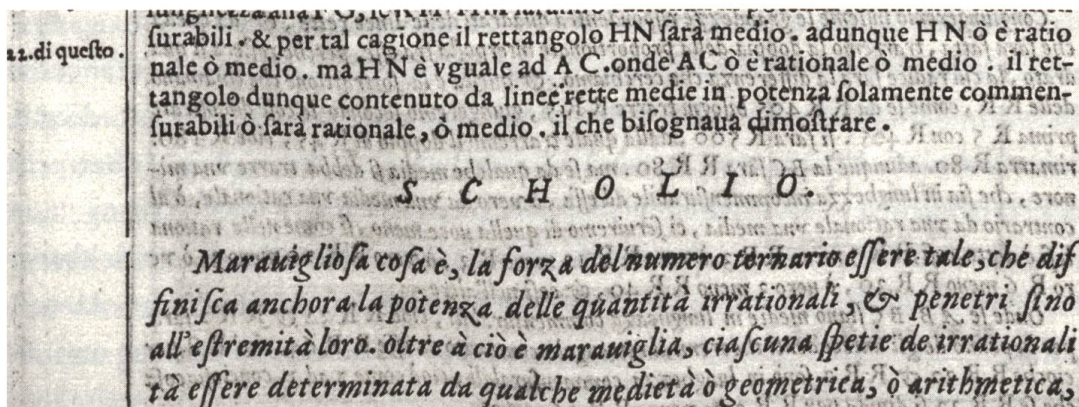 22.di queſto.
ſurabili. & per tal cagione il rettangolo HN ſarà medio. adunque H N ò è ratio
nale ò medio. ma H N è vguale ad A C. onde AC ò è rationale ò medio. il ret-
tangolo dunque contenuto da linee rette medie in potenza ſolamente commen-
ſurabili ò ſarà rationale, ò medio. il che biſognaua dimoſtrare.
S C H O L I O.
Marauiglioſa coſa è, la forza del numero ternario eſſere tale, che dif
finiſca anchora la potenza delle quantità irrationali, & penetri ſino
all' eſtremità loro. oltre à ciò è marauiglia, ciaſcuna ſpetie de irrationali
tà eſſere determinata da qualche medietà ò geometrica, ò arithmetica,